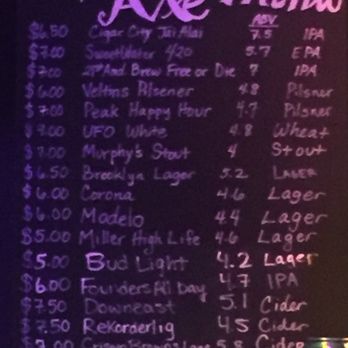 Axe Menu
ABV
$6.50 Cigar City Jai Alai 7.5 IPA
$7.00 SweetWater 420 5.7 EPA
$7.00 21st And Brew Free or Die 7 IPA
$6.00 Veltins Pilsener 4.8 Pilsner
$7.00 Peak Happy Hour 4.7 Pilsner
$7.00 UFO White 4.8 Wheat
$7.00 Murphy's Stout 4 Stout
$6.50 Brooklyn Lager 5.2 Lager
$6.00 Corona 4.6 Lager
$6.00 Modelo 4.4 Lager
$5.00 Miller High Life 4.6 Lager
$5.00 Bud Light 4.2 Lager
$6.00 Founders All Day 4.7 IPA
$7.50 Downeast 5.1 Cider
$7.50 Rekorderlig 4.5 Cider
5.8 Cider